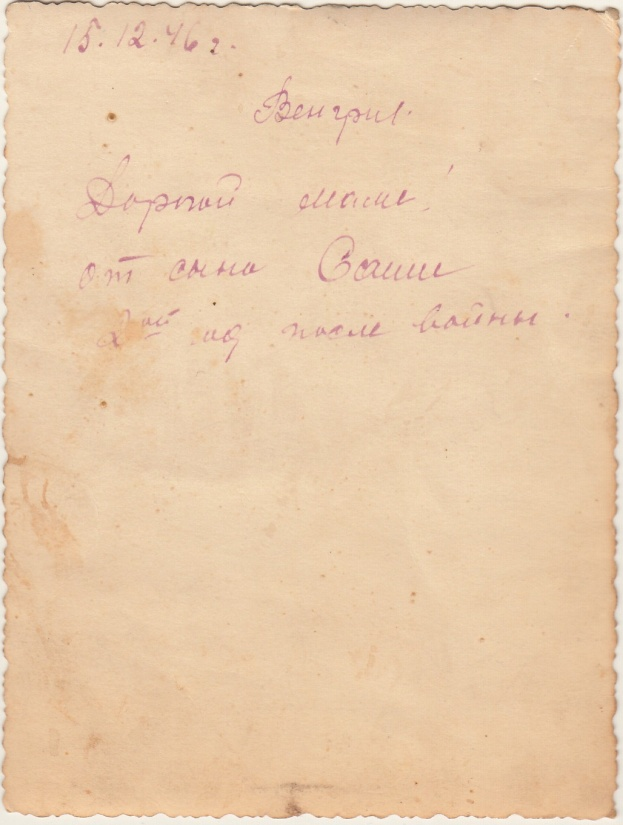 15.12.46 г.
Венгрия.
Дорогой маме!
от сына Саши
2ой год после войны.